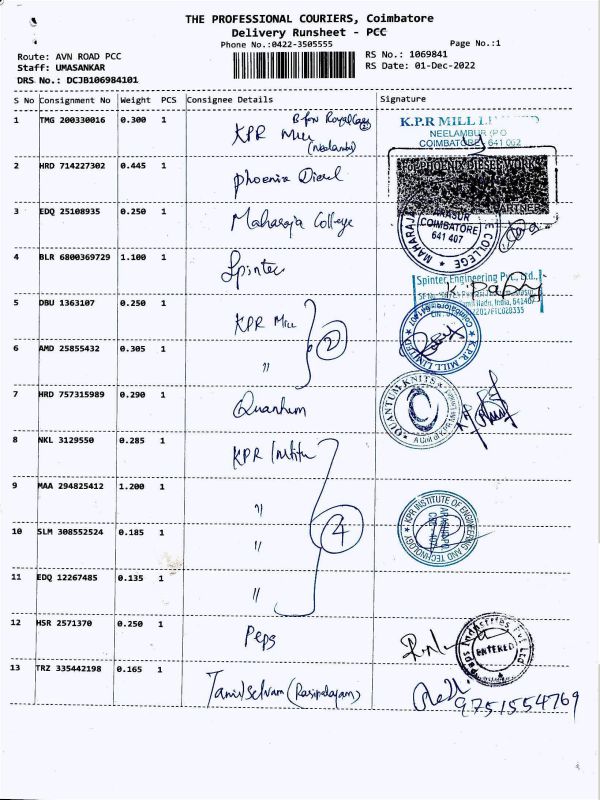 THE PROFESSIONAL COURIERS, Coimbatore
Delivery Runsheet - PCC
Phone No.:0422-3505555
Page No.:1
Route: AVN ROAD PCC
RS No.: 1069841
Staff: UMASANKAR
RS Date: 01-Dec-2022
DRS No.: DCJB106984101
S No Consignment No Weight PCS Consignee Details Signature
1 TMG 200330016 0.300 1 KPR Mill
(Neelambur)
K.P.R MILL LIMITED
NEELAMBUR (P.O
COIMBATORE 641 062
2 HRD 714227302 0.445 1 Phoenix Diesel
For PHOENIX DIESEL WORKS
PARTNER
3 EDQ 25108935 0.250 1 Maharaja College
MAHARAJA COLLEGE
ARASUR
COIMBATORE
641 407
4 BLR 6800369729 1.100 1 Spinter
Spinter Engineering Pvt. Ltd.,
Tamil Nadu, India, 641407
5 DBU 1363107 0.250 1 KPR Mill
2
K.P.R. MILL LIMITED
6 AMD 25855432 0.305 1 "
7 HRD 757315989 0.290 1 Quantum
QUANTUM KNITS
8 NKL 3129550 0.285 1 KPR Institu
9 MAA 294825412 1.200 1 "
4
KPR INSTITUTE OF ENGINEERING AND TECHNOLOGY
10 SLM 308552524 0.185 1 "
11 EDQ 12267485 0.135 1 "
12 HSR 2571370 0.250 1 Peps
Peps Industries Pvt Ltd
ENTERED
13 TRZ 335442198 0.165 1 Tamilselvam (Rasipalayam)
9751554769